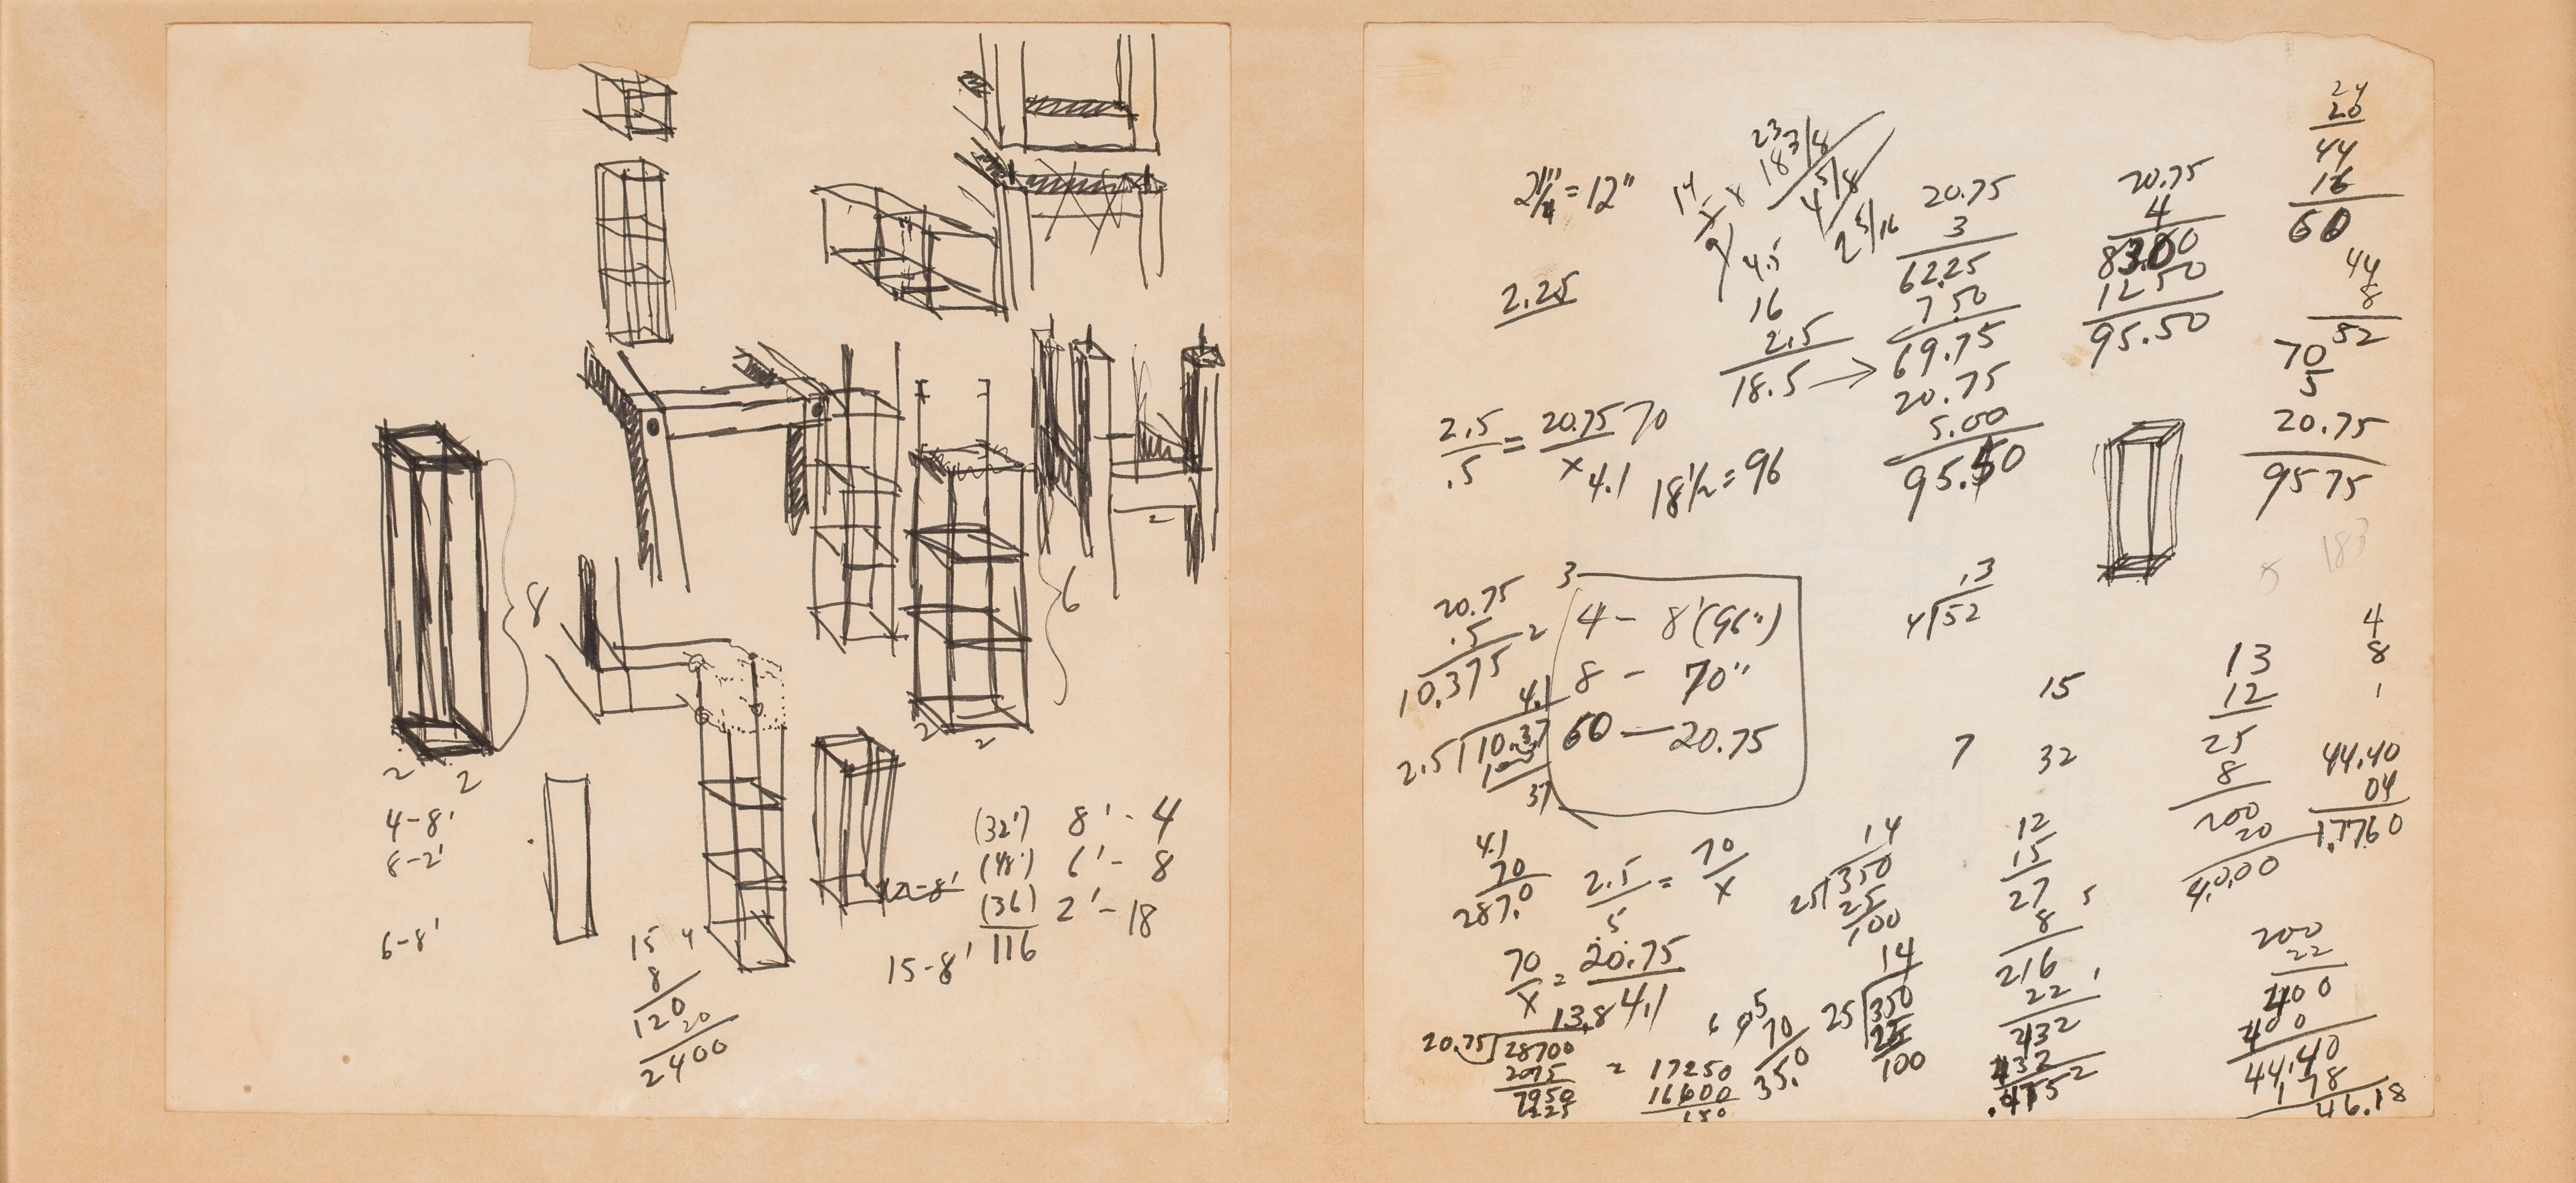 8
6
2
2
2
2
2
4-8'
8-2'
6-8'
15 4
8
120
20
2400
12-8'
15-8'
(32') 8'-4
(48') 6'-8
(36) 2'-18
116
2 1/4" = 12"
2.25
23
18 3/8
4 5/8
2 5/16
14
4.5
16
2.5
18.5 →
20.75
3
62.25
7.50
69.75
20.75
5.00
95.50
20.75
4
83.00
12 50
95.50
24
20
44
16
60
44
8
52
70
5
20.75
95 75
183
5
2.5/.5 = 20.75/x 70
4.1
18 1/2 = 96
20.75
.5
10.375
2
4.1
2.5 10.37
37
3
4 - 8' (96")
8 - 70"
60 - 20.75
13
4 52
15
7 32
13
12
25
8
200
20
40.00
4
8
1
44.40
04
1.7760
4.1
70
287.0
2.5/.5 = 70/x
14
25 350
25
100
12
15
27 5
8
216
22
432
432
4752
70/x = 20.75/4.1
13.8
20.75 28700
2075
7950
6225
= 17250
16600
150
5
70
35.0
14
25 350
25
100
200
22
400
400
44.40
1 78
46.18